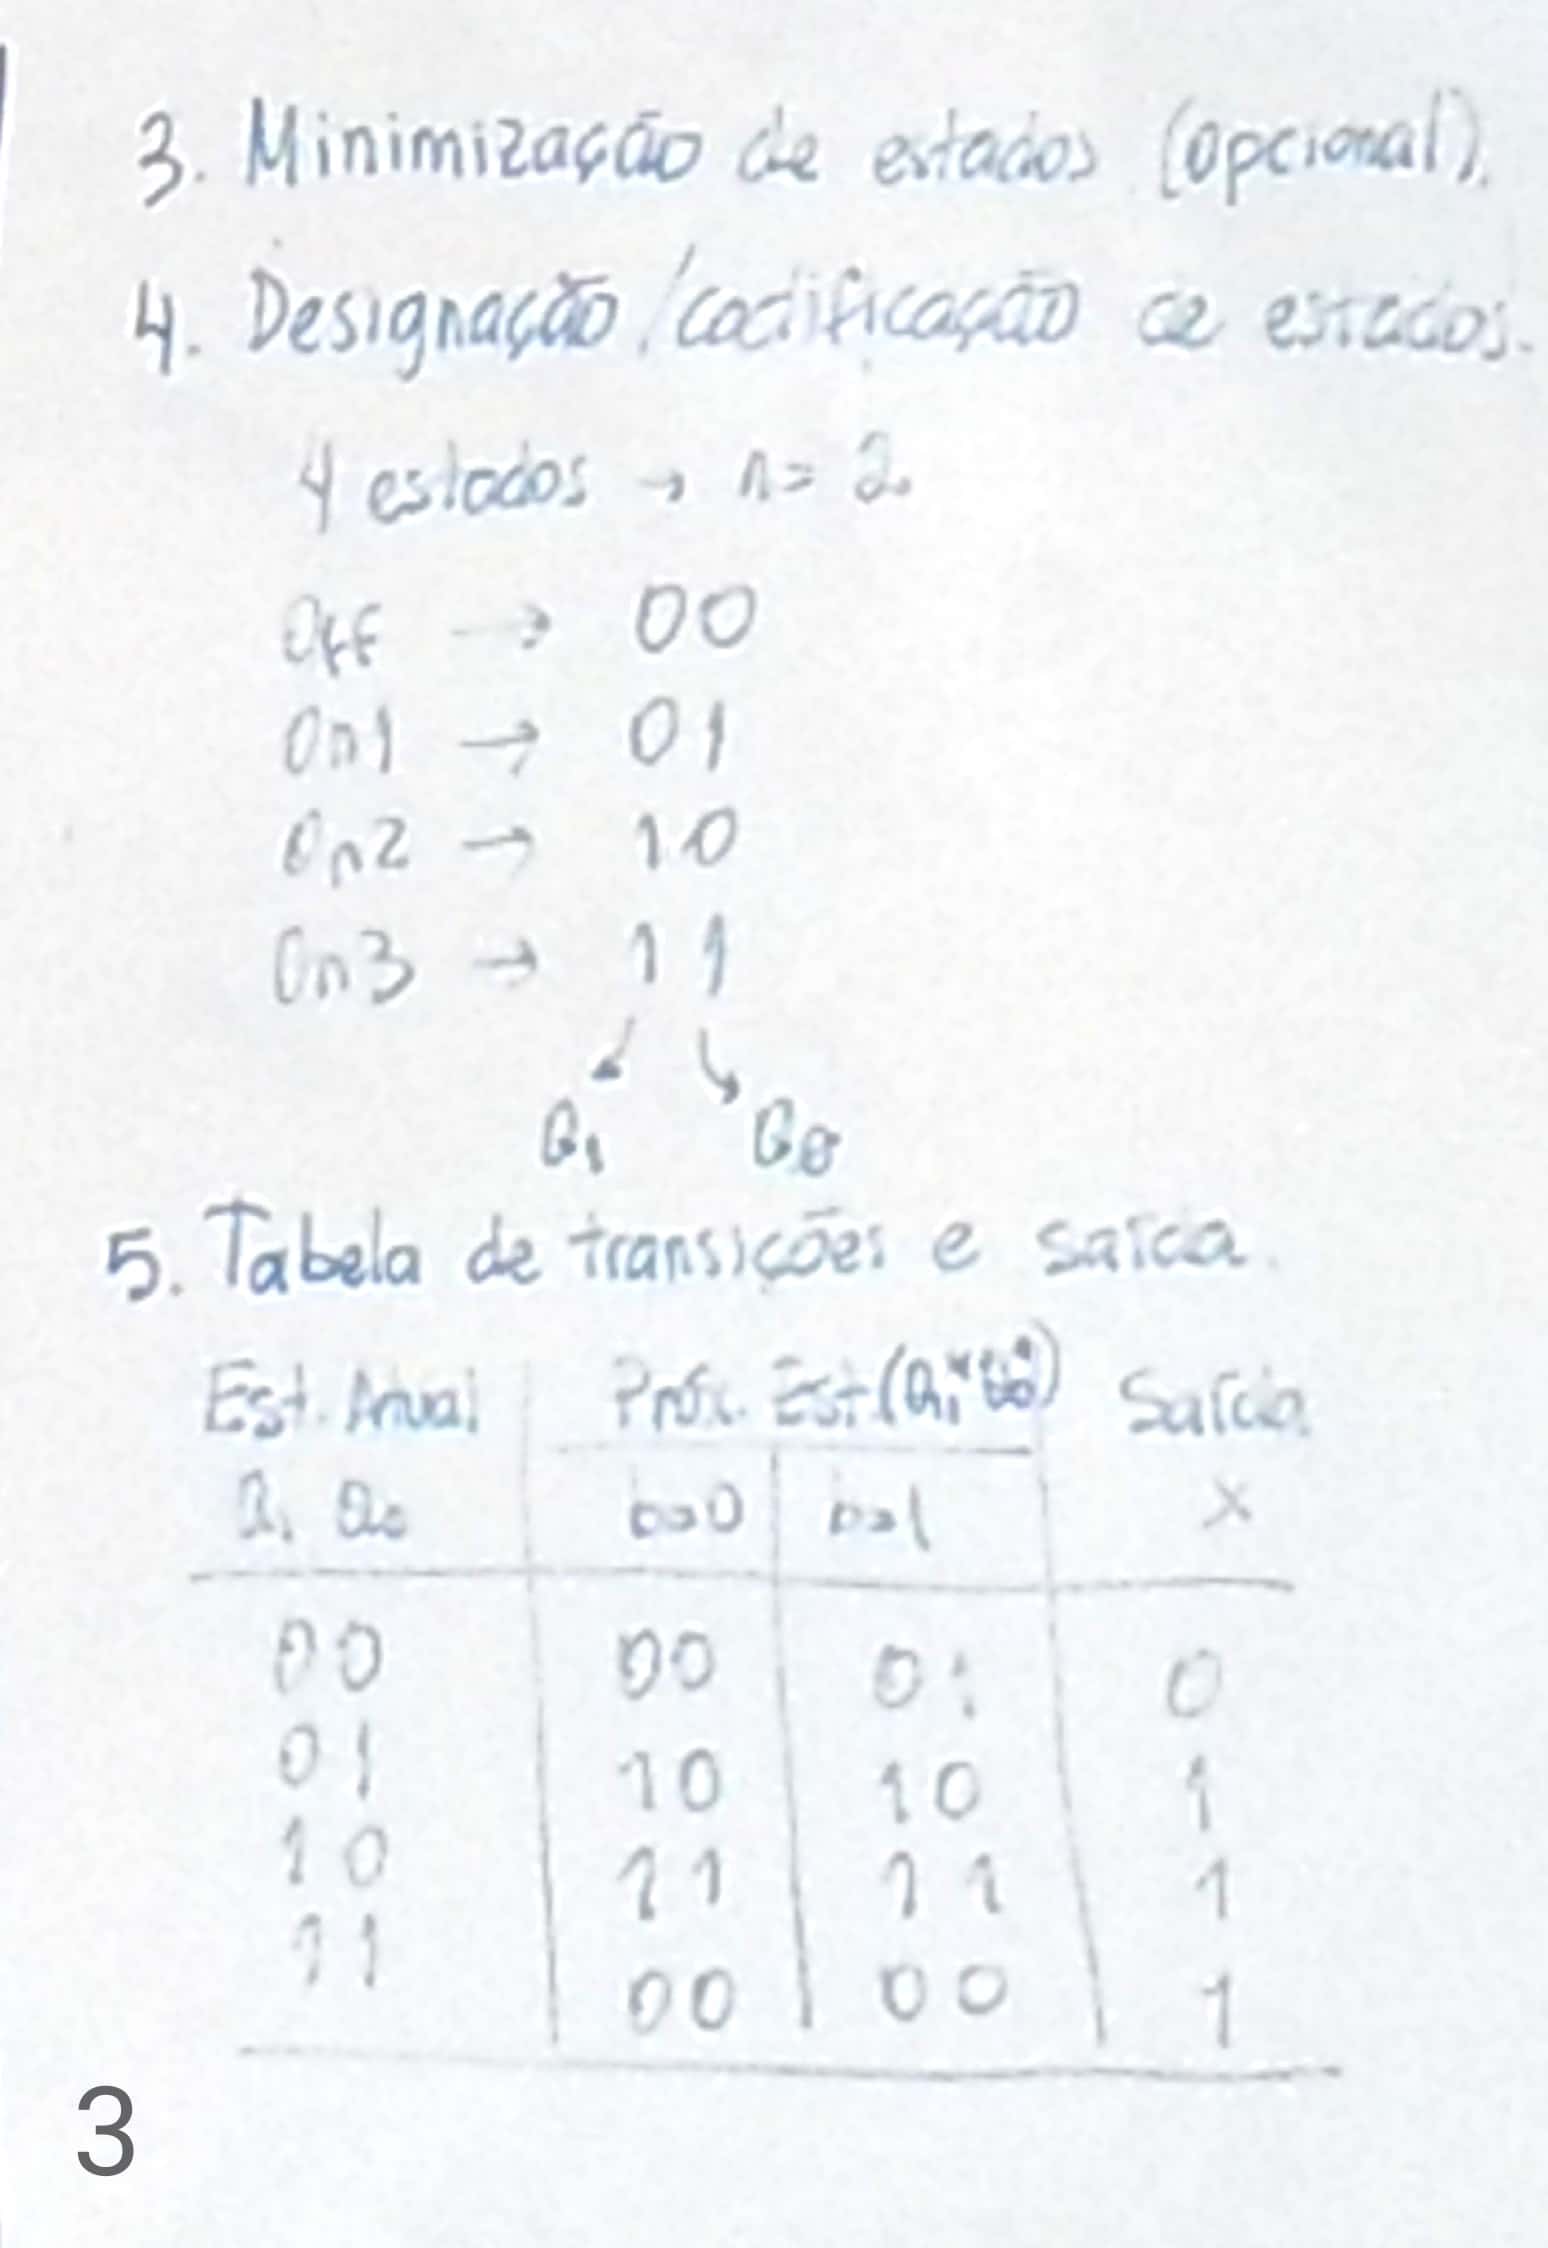 3. Minimização de estados (opcional).
4. Designação/codificação de estados.
4 estados → n = 2.
Off → 00
On1 → 01
On2 → 10
On3 → 11
Q1 Q0
5. Tabela de transições e saída.
Est. Atual Próx. Est (Q1* Q0*) Saída
Q1 Q0 b=0 b=1 x
00 00 01 0
01 10 10 1
10 11 11 1
11 00 00 1
3